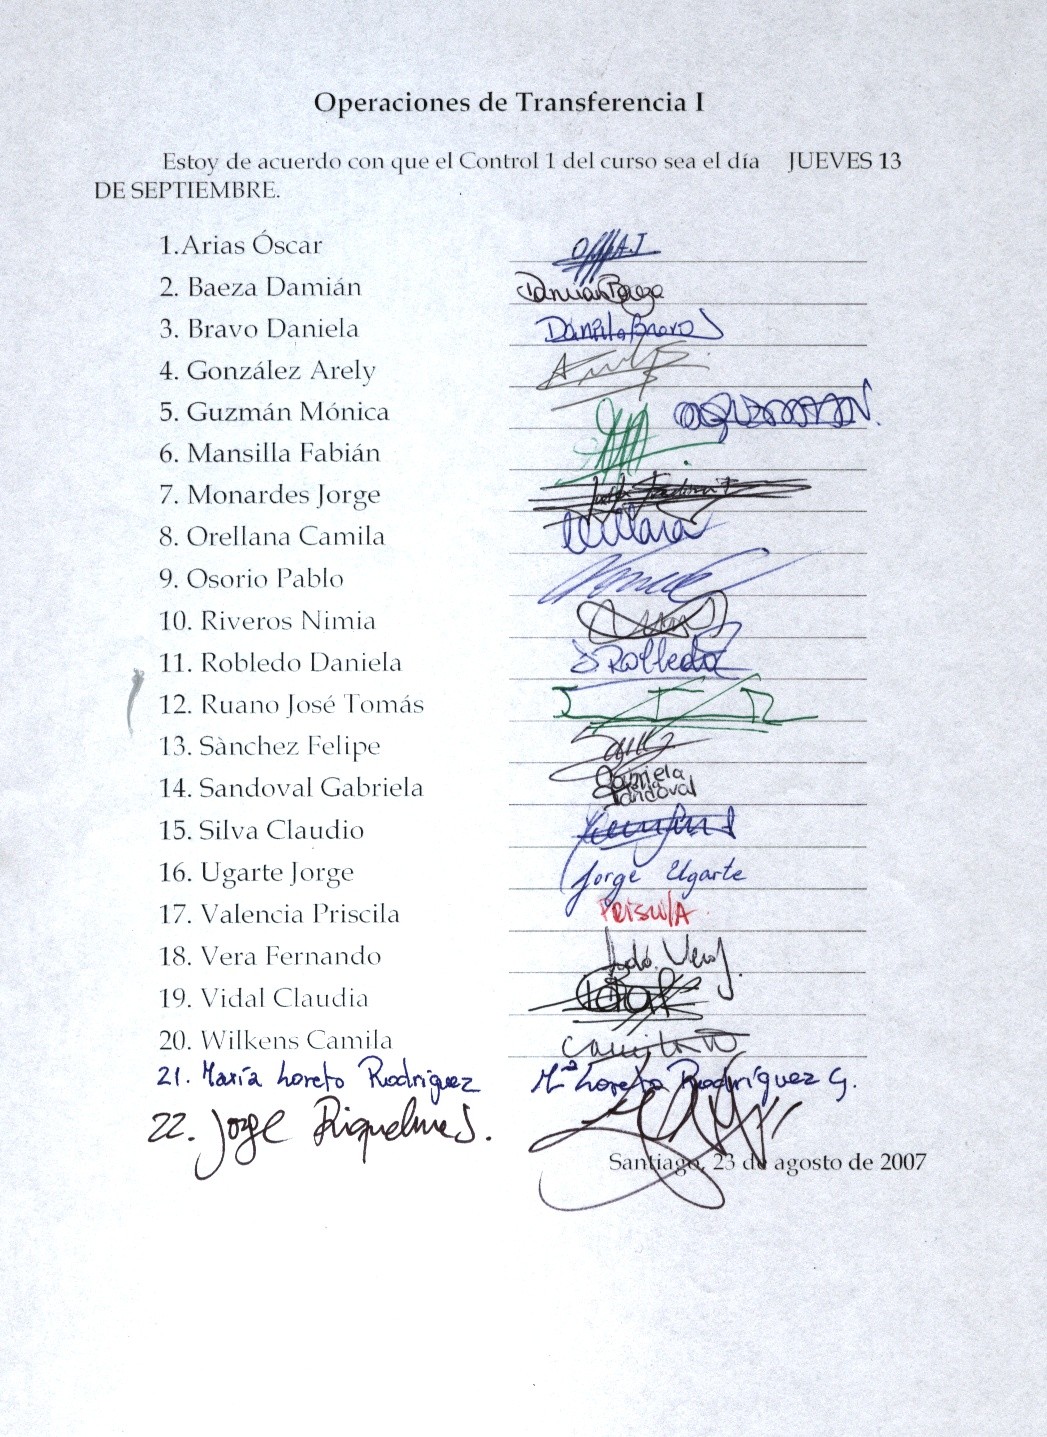 Operaciones de Transferencia I
Estoy de acuerdo con que el Control 1 del curso sea el día JUEVES 13
DE SEPTIEMBRE.
1.Arias Óscar
2. Baeza Damián Damián Baeza
3. Bravo Daniela Daniela Bravo
4. González Arely
5. Guzmán Mónica GUZMAN.
6. Mansilla Fabián
7. Monardes Jorge
8. Orellana Camila
9. Osorio Pablo
10. Riveros Nimia
11. Robledo Daniela D Robledo
12. Ruano José Tomás
13. Sànchez Felipe
14. Sandoval Gabriela Gabriela Sandoval
15. Silva Claudio
16. Ugarte Jorge Jorge Ugarte
17. Valencia Priscila PRISCILA
18. Vera Fernando
19. Vidal Claudia
20. Wilkens Camila
21. María Loreto Rodríguez Mª Loreto Rodríguez G.
22. Jorge Riquelme S.
Santiago, 23 de agosto de 2007